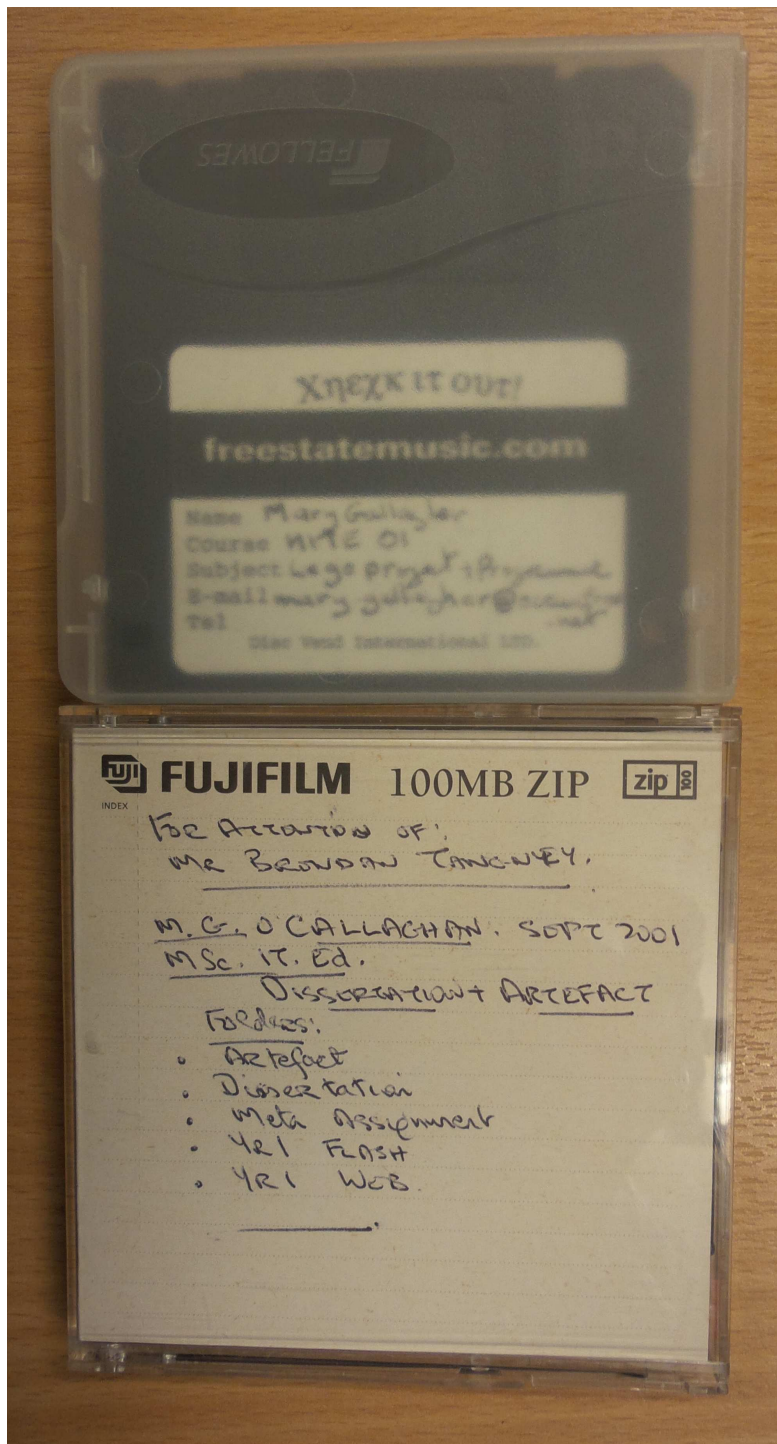 FELLOWES
Χηεχκ ιτ ουτ!
freestatemusic.com
Name Mary Gallagher
Course MITE 01
Subject Lego project +
E-mail mary gallagher@
.net
Tel
Disc Vend International LTD.
FUJI FUJIFILM 100MB ZIP zip 100
INDEX
FOR ATTENTION OF:
MR BRENDAN TANGNEY.
M.G. O'CALLAGHAN. SEPT 2001
MSc. IT. Ed.
DISSERTATION + ARTEFACT
Folders:
• Artefact
• Dissertation
• Meta Assignment
• YR1 FLASH
• YR1 WEB.